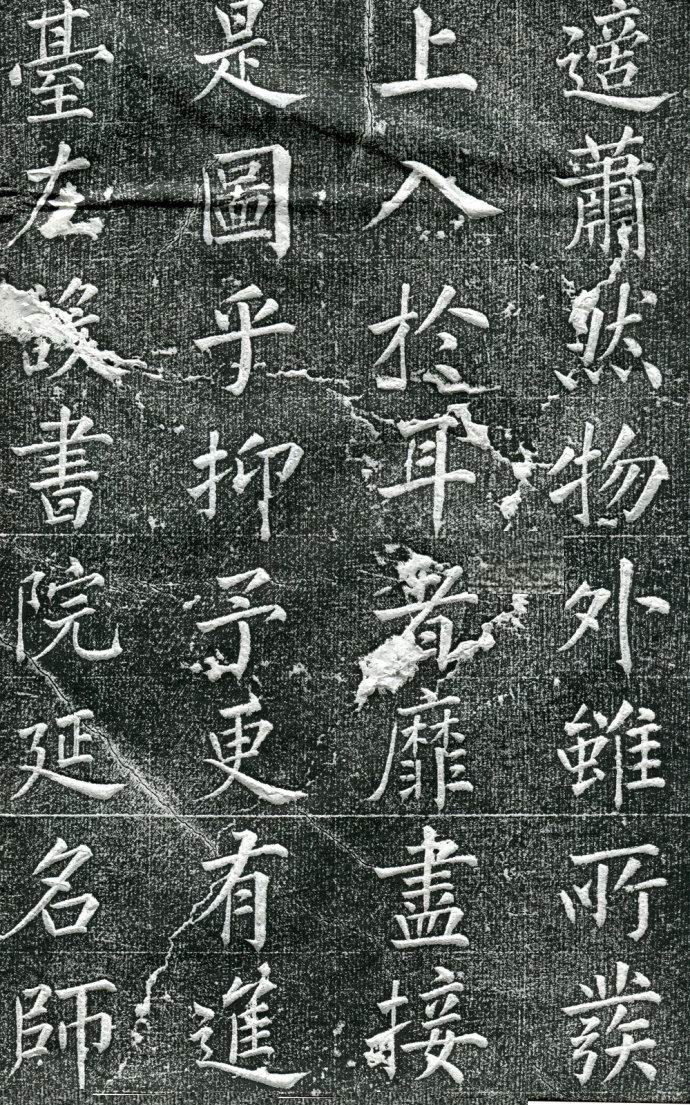 適蕭然物外雖所發
上入扵耳者靡盡接
是圖乎抑予更有進
臺左設書院延名師